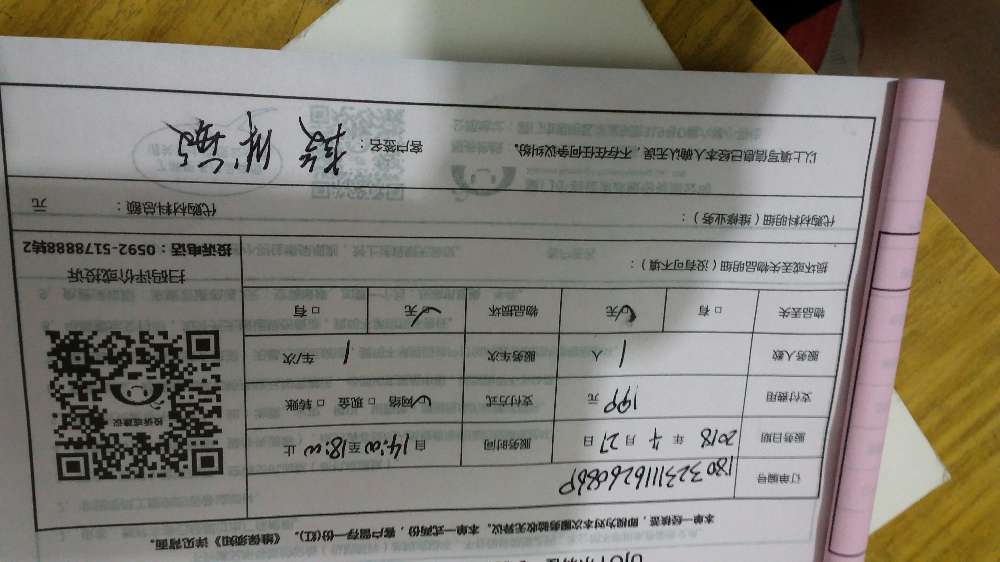 本单一经核签，即视为对本次服务验收无异议。本单一式两份，客户留存一份(红)。《维保须知》详见背面。
订单编号
服务日期 2018 年 4 月 27 日 服务时间 自 14:00 至 18:00 止
支付费用 199 元 支付方式 ☑网络 □ 现金 □ 转账
服务人数 1 人 服务车次 1 车/次
物品丢失 □ 有 ☑无 物品损坏 ☑无 □ 有
投诉或建议
扫码评价或投诉
投诉电话：0592-5178888转2
损坏或丢失物品明细（没有可不填）：
代购材料明细（维修业务）： 代购材料总额： 元
以上填写信息已经本人确认无误，不存在任何争议纠纷。 客户签名：